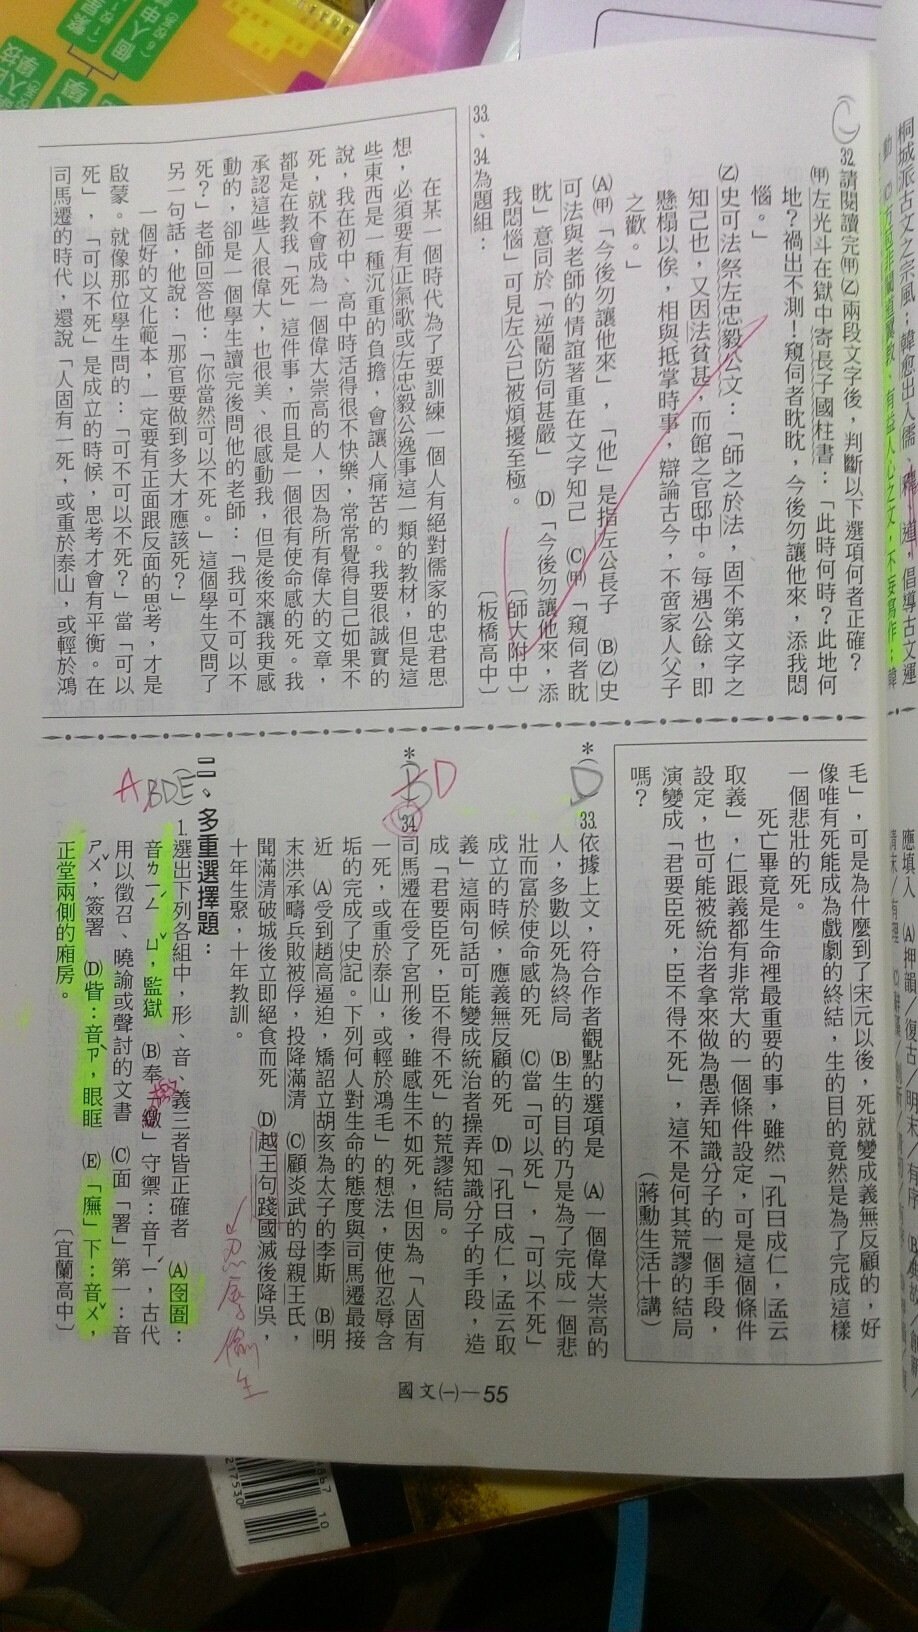 C
32.請閱讀完(甲)(乙)兩段文字後，判斷以下選項何者正確？
(甲)左光斗在獄中寄長子國柱書：「此時何時？此地何
地？禍出不測！窺伺者眈眈，今後勿讓他來，添我悶
惱。」
(乙)史可法祭左忠毅公文：「師之於法，固不第文字之
知己也，又因法貧甚，而館之官邸中。每遇公餘，即
懸榻以俟，相與抵掌時事，辯論古今，不啻家人父子
之歡。」
(A)(甲)「今後勿讓他來」，「他」是指左公長子　(B)(乙)史
可法與老師的情誼著重在文字知己　(C)(甲)「窺伺者眈
眈」意同於「逆閹防伺甚嚴」　(D)「今後勿讓他來，添
我悶惱」可見左公已被煩擾至極。
〔師大附中〕
〔板橋高中〕
33.、34.為題組：
在某一個時代為了要訓練一個人有絕對儒家的忠君思
想，必須要有正氣歌或左忠毅公逸事這一類的教材，但是這
些東西是一種沉重的負擔，會讓人痛苦的。我要很誠實的
說，我在初中、高中時活得很不快樂，常常覺得自己如果不
死，就不會成為一個偉大崇高的人，因為所有偉大的文章，
都是在教我「死」這件事，而且是一個很有使命感的死。我
承認這些人很偉大，也很美、很感動我，但是後來讓我更感
動的，卻是一個學生讀完後問他的老師：「我可不可以不
死？」老師回答他：「你當然可以不死。」這個學生又問了
另一句話，他說：「那官要做到多大才應該死？」
一個好的文化範本，一定要有正面跟反面的思考，才是
啟蒙。就像那位學生問的：「可不可以不死？」當「可以
死」，「可以不死」是成立的時候，思考才會有平衡。在
司馬遷的時代，還說「人固有一死，或重於泰山，或輕於鴻
毛」，可是為什麼到了宋元以後，死就變成義無反顧的，好
像唯有死能成為戲劇的終結，生的目的竟然是為了完成這樣
一個悲壯的死。
死亡畢竟是生命裡最重要的事，雖然「孔曰成仁，孟云
取義」，仁跟義都有非常大的一個條件設定，可是這個條件
設定，也可能被統治者拿來做為愚弄知識分子的一個手段，
演變成「君要臣死，臣不得不死」，這不是何其荒謬的結局
嗎？
（蔣勳生活十講）
*(D)33.依據上文，符合作者觀點的選項是　(A)一個偉大崇高的
人，多數以死為終局　(B)生的目的乃是為了完成一個悲
壯而富於使命感的死　(C)當「可以死」，「可以不死」
成立的時候，應義無反顧的死　(D)「孔曰成仁，孟云取
義」這兩句話可能變成統治者操弄知識分子的手段，造
成「君要臣死，臣不得不死」的荒謬結局。
*(B)D 34.司馬遷在受了宮刑後，雖感生不如死，但因為「人固有
一死，或重於泰山，或輕於鴻毛」的想法，使他忍辱含
垢的完成了史記。下列何人對生命的態度與司馬遷最接
近　(A)受到趙高逼迫，矯詔立胡亥為太子的李斯　(B)明
末洪承疇兵敗被俘，投降滿清　(C)顧炎武的母親王氏，
聞滿清破城後立即絕食而死　(D)越王句踐國滅後降吳，
十年生聚，十年教訓。
忍辱偷生
二、多重選擇題：
A BDE
1.選出下列各組中，形、音、義三者皆正確者　(A)囹圄：
音ㄌㄧㄥˊ ㄩˇ，監獄　(B)奉「繳」守禦：音ㄒㄧˊ，古代
檄
用以徵召、曉諭或聲討的文書　(C)面「署」第一：音
ㄕㄨˇ，簽署　(D)眥：音ㄗˋ，眼眶　(E)「廡」下：音ㄨˇ，
正堂兩側的廂房。
〔宜蘭高中〕
國文(一)—55
217530
10